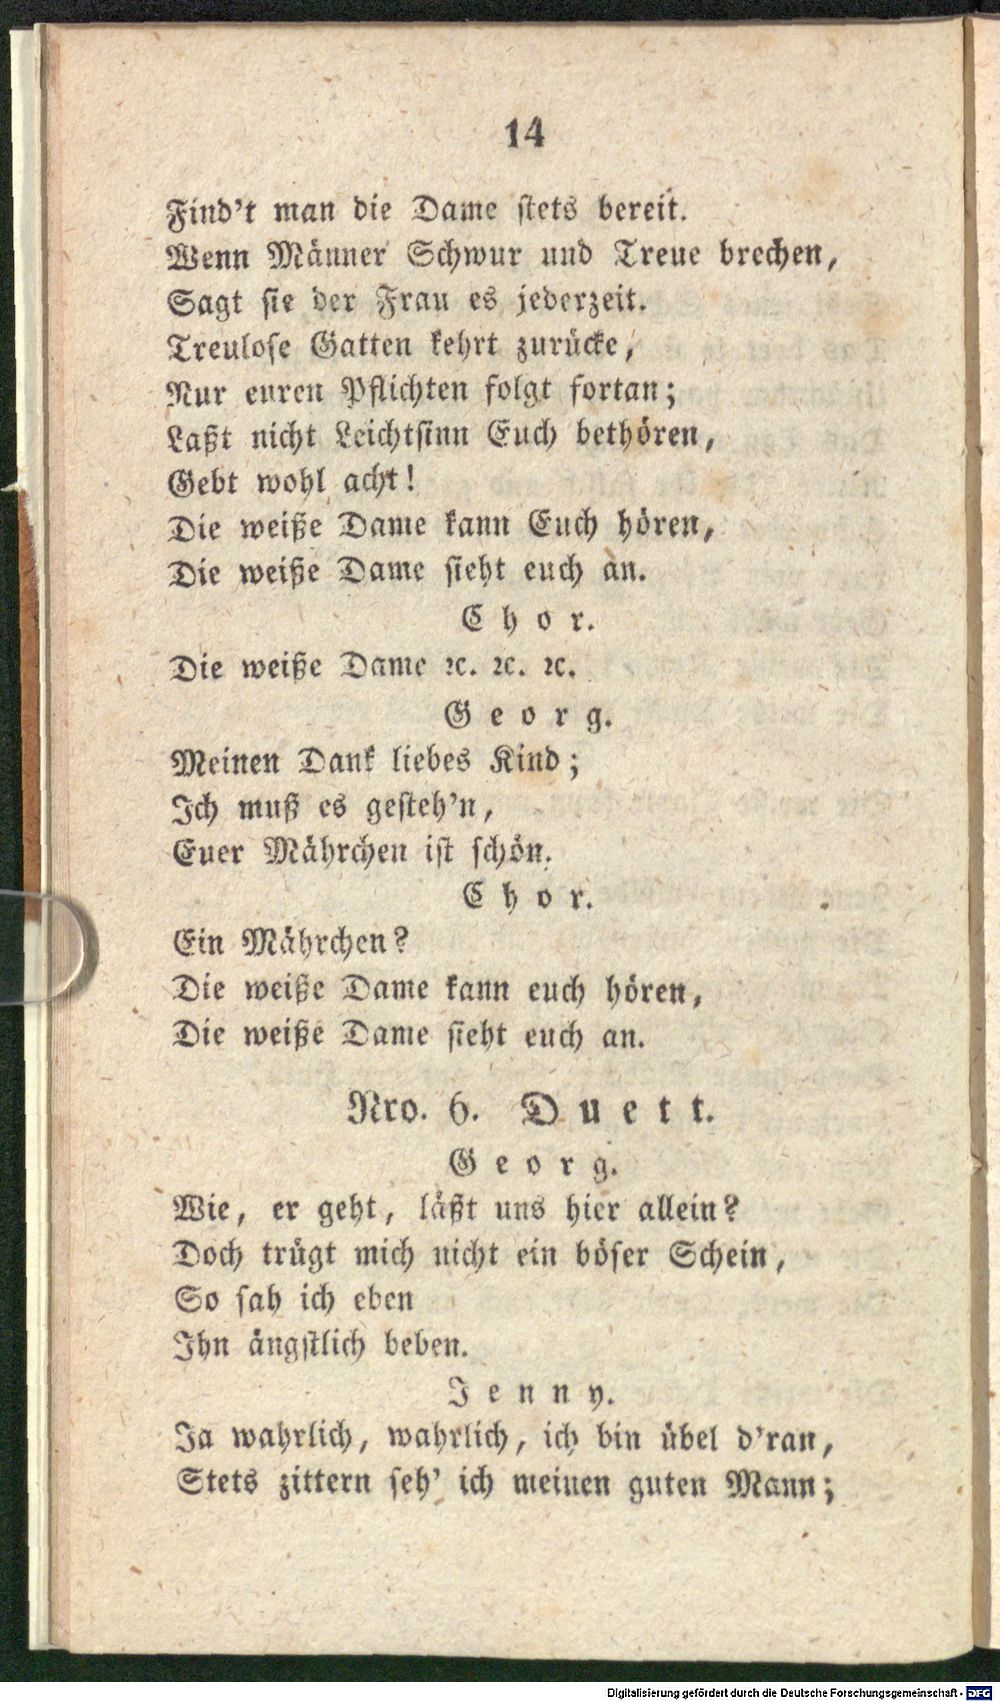 14
Find't man die Dame stets bereit.
Wenn Männer Schwur und Treue brechen,
Sagt sie der Frau es jederzeit.
Treulose Gatten kehrt zurücke,
Nur euren Pflichten folgt fortan;
Laßt nicht Leichtsinn Euch bethören,
Gebt wohl acht!
Die weiße Dame kann Euch hören,
Die weiße Dame sieht euch an.
Chor.
Die weiße Dame ꝛc. ꝛc. ꝛc.
Georg.
Meinen Dank liebes Kind;
Ich muß es gesteh'n,
Euer Mährchen ist schön.
Chor.
Ein Mährchen?
Die weiße Dame kann euch hören,
Die weiße Dame sieht euch an.
Nro. 6. Duett.
Georg.
Wie, er geht, läßt uns hier allein?
Doch trügt mich nicht ein böser Schein,
So sah ich eben
Ihn ängstlich beben.
Jenny.
Ja wahrlich, wahrlich, ich bin übel d'ran,
Stets zittern seh' ich meinen guten Mann;
Digitalisierung gefördert durch die Deutsche Forschungsgemeinschaft - DFG